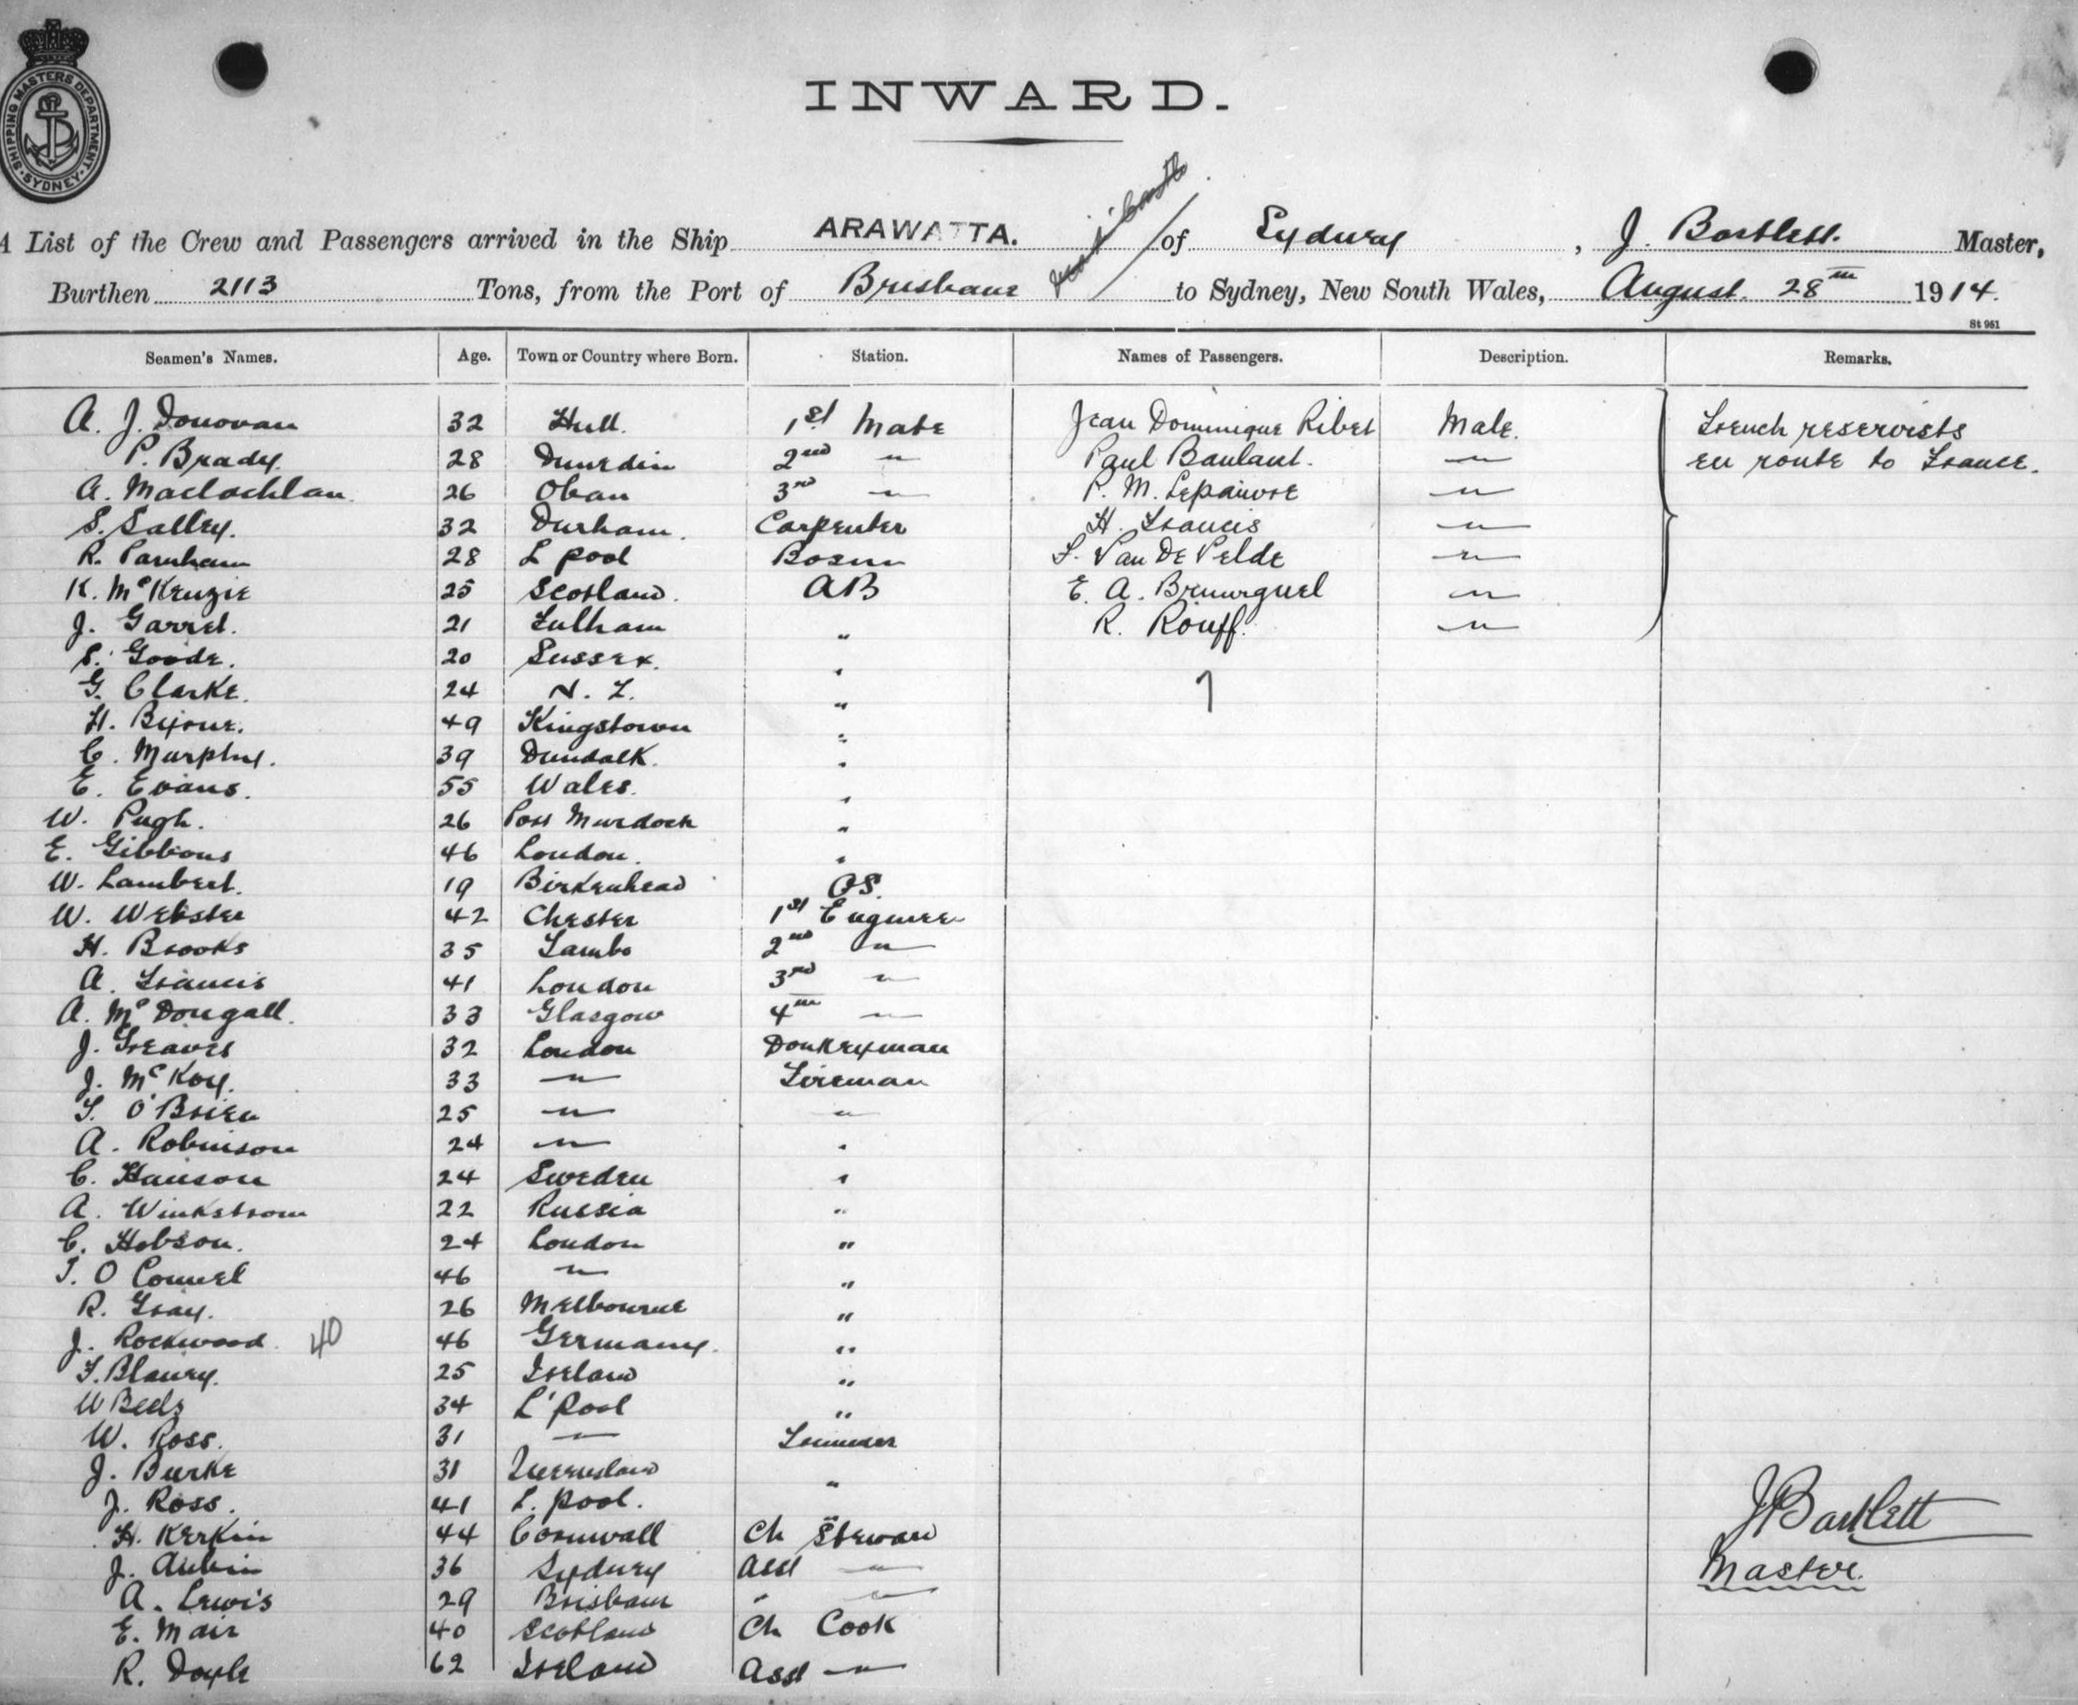 SHIPPING MASTERS DEPARTMENT · SYDNEY ·
INWARD.
A List of the Crew and Passengers arrived in the Ship ARAWATTA. of Sydney, J. Bartlett. Master,
Burthen 2113 Tons, from the Port of Brisbane to Sydney, New South Wales, August. 28th 1914.
St 951
Seamen's Names. Age. Town or Country where Born. Station. Names of Passengers. Description. Remarks.
A. J. Donovan 32 Hull. 1st Mate Jean Dominique Ribet Male. French reservists
P. Brady. 28 Dunedin 2nd " Paul Baulant. " en route to France.
A. Maclachlan 26 Oban 3rd " P. M. Lepauvre "
S. Salley. 32 Durham. Carpenter H. Francis "
R. Parnham 28 L pool Bosun F. Van De Velde "
K. McKenzie 25 Scotland. AB E. A. "
J. Garret. 21 Fulham " R. Rouff. "
S. Goode. 20 Sussex. "
G. Clarke. 24 N. Z. " 7
H. 49 Kingstown "
C. Murphy. 39 Dundalk. "
E. Evans. 55 Wales. "
W. Pugh. 26 Port Murdock "
E. Gibbons 46 London. "
W. Lambert. 19 Birkenhead OS.
W. Webster 42 Chester 1st Engineer
H. Brooks 35 2nd "
A. Francis 41 London 3rd "
A. McDougall. 33 Glasgow 4th "
J. Greaves 32 London Donkeyman
J. McKoy. 33 " Fireman
T. O'Brien 25 " "
A. Robinson 24 " "
C. Hanson 24 Sweden "
A. Winkstrom 22 Russia "
C. Hobson. 24 London "
T. O Connel 46 " "
R. Gray. 26 Melbourne "
J. Rockwood 40 46 Germany. "
F. Blaney. 25 Ireland "
W 34 L'pool "
W. Ross. 31 " Trimmer
J. Burke 31 Queensland "
J. Ross. 41 L. pool. "
H. Kerkin 44 Cornwall Ch Steward
J. Aubin 36 Sydney Asst "
A. Lewis 29 Brisbane " "
E. Mair 40 Scotland Ch Cook
R. Doyle 62 Ireland Asst "
J Bartlett
Master.